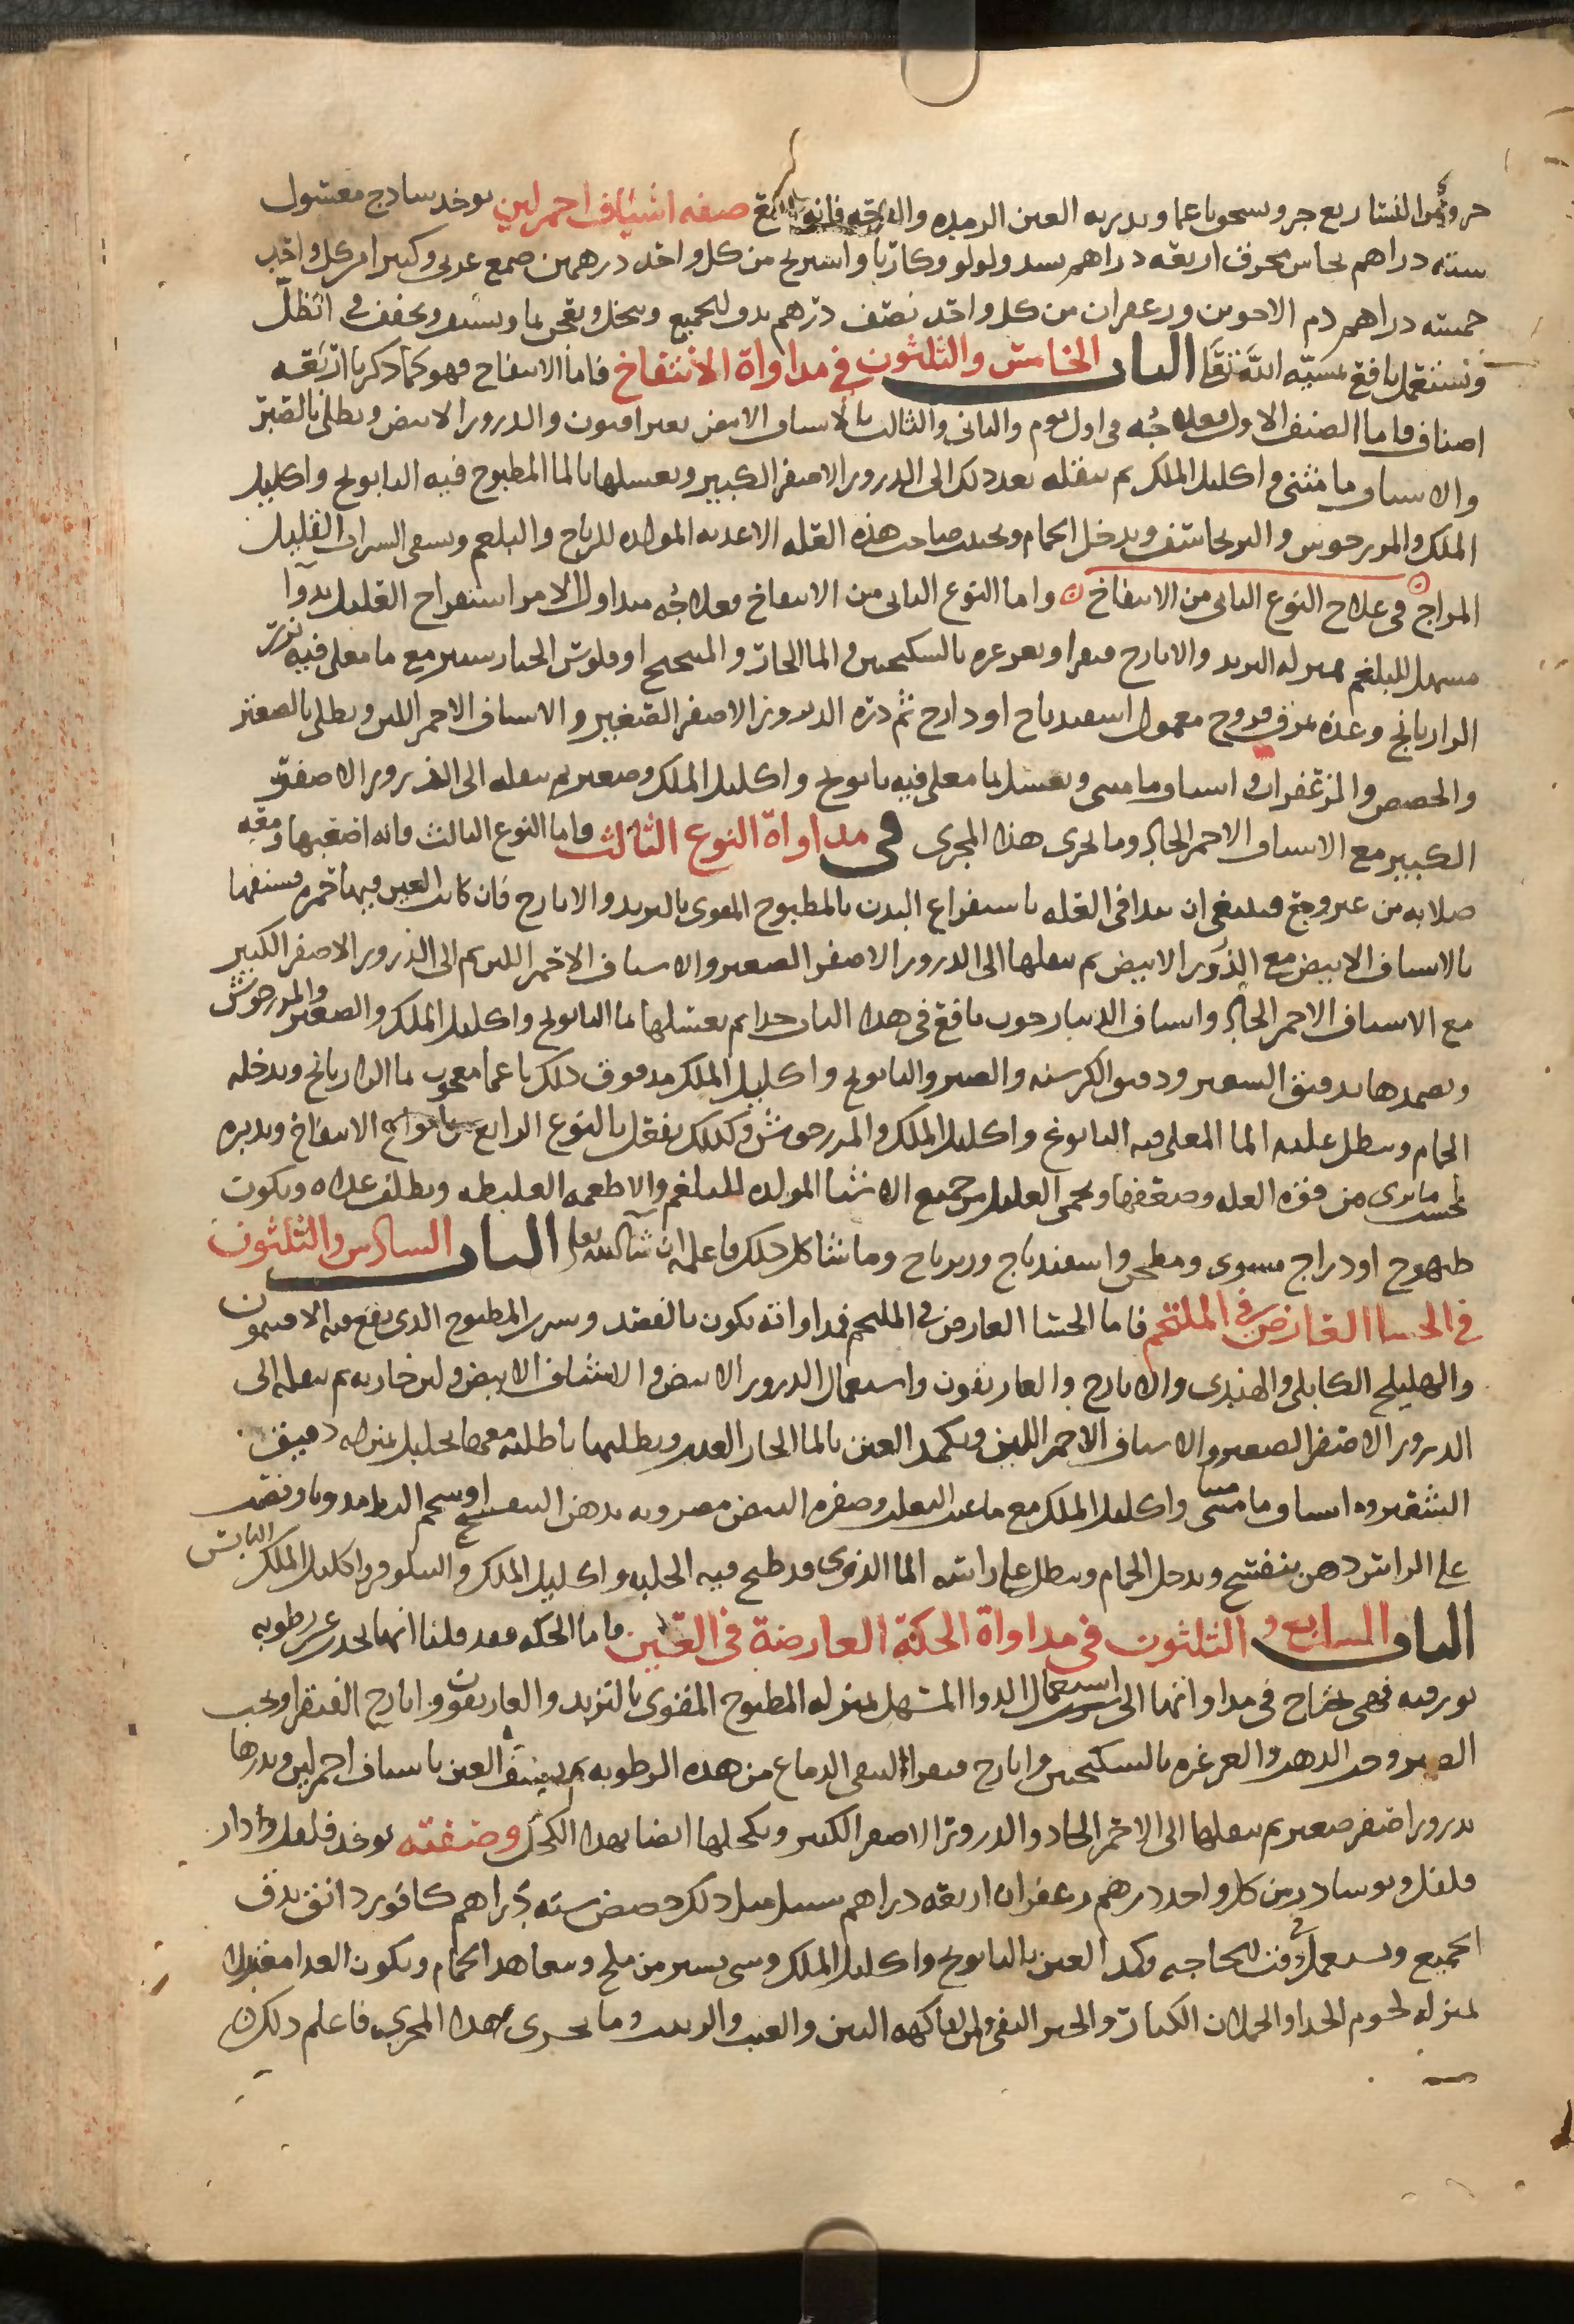 جزو ومن النشا ربع جزو يسحق ناعما ويدر به العين الرمده والقرحه فانه نافع صفه اشياف احمر لين يوخذ سادج مغسول
سته دراهم نحاس محرق اربعه دراهم بسد ولولو وكاربا واسرنج من كل واحد درهمين صمغ عربي وكثيرا من كل واحد
خمسه دراهم دم الاخوين وزعفران من كل واحد نصف درهم يدق الجميع وينخل ويعجن بما ويشيف ويجفف في الظل
ويستعمل نافع بمشيه الله تعالى الباب الخامس والثلثون في مداواة الانتفاخ فاما الانتفاخ فهو كما ذكرنا اربعه
اصناف فاما الصنف الاول فعلاجه في اول يوم والثاني والثالث بالاشياف الابيض بغير افيون والدرور الابيض ويطلى بالصبر
والاشياف ماميثى واكليل الملك ثم ينقله بعد ذلك الى الدرور الاصفر الكبير ويغسلها بالما المطبوخ فيه البابونج واكليل
الملك والمرزجوش والبرنجاسف ويدخل الحمام ويجنب صاحب هذه العله الاغديه المولده للرياح والبلغم ويسقى الشراب القليل
المزاج في علاج النوع الثاني من الانتفاخ واما النوع الثاني من الانتفاخ فعلاجه يبدا اول الامر استفراغ العليل بدوا
مسهل للبلغم بمنزله التربد والايارج فيقرا ويغرغره بالسكنجبين والما الحار والميبختج او فلوس الخيارشنبر مع ما مغلي فيه بزر
الرازيانج وغذه بمزق فروج معمول اسفيدباج او دراج ثم دره الدرور الاصفر الصغير والاشياف الاحمر اللين ويطلى بالصبر
والحضض والزعفران واشياف ماميثى ويغسل بما مغلي فيه بابونج واكليل الملك وصعتر ثم ينقله الى الذرور الاصفر
الكبير مع الاشياف الاحمر الحاد وما يجري هذا المجرى في مداواة النوع الثالث فاما النوع الثالث فانه اصعبها ومعه
صلابه من غير وجع فينبغي ان يبدا في العله باستفراغ البدن بالمطبوخ المقوى بالتربد والايارج فان كانت العين فيها حمره فشيفها
بالاشياف الابيض مع الذرور الابيض ثم ينقلها الى الدرور الاصفر الصغير والاشياف الاحمر اللين ثم الى الذرور الاصفر الكبير
مع الاشياف الاحمر الحاد واشياف الدينارجون نافع في هذا الباب جدا ثم يغسلها بما البابونج واكليل الملك والصعتر والمرزجوش
ويضمدها بدقيق الشعير ودقيق الكرسنه والصبر والبابونج واكليل الملك مدقوق ذلك ناعما معجون بما الرازيانج ويدخله
الحمام وينطل عليه الما المغلي فيه البابونج واكليل الملك والمرزجوش وكذلك يفعل بالنوع الرابع من انواع الانتفاخ ويدبره
بحسب مايرى من قوه العله وضعفها ويحمى العليل من جميع الاشيا المولده للبلغم والاطعمه الغليظه ويطلف غداه ويكون
طيهوج او دراج مشوي ومطجن واسفيدباج وزيرباج وما شاكل ذلك فاعلم ان شا الله تعالى الباب السادس والثلثون
في الجسا العارض في الملتحم فاما الجسا العارض في الملتحم فمداواته يكون بالفصد وشرب المطبوخ الذي يقع فيه الافتيمون
والهليلج الكابلي والهندي والايارج والغاريقون واستعمال الدرور الابيض والاشياف الابيض ولبن جاريه ثم ينقله الى
الدرور الاصفر الصغير والاشياف الاحمر اللين ويكمد العين بالما الحار العذب ويطليها باطليه معها تحليل بمنزله دقيق
الشعير واشياف ماميثى واكليل الملك مع ما عنب الثعلب وصفره البيض مضروبه بدهن البنفسج او شحم البط مدوبا ويضمد
على الراس دهن بنفسج ويدخل الحمام وينطل على راسه الما الذي قد طبخ فيه الحلبه واكليل الملك والنيلوفر واكليل الملك اليابس
الباب السابع والثلثون في مداواة الحكة العارضة في العين فاما الحكه فقد قلنا انها تحدث عن رطوبه
بورقيه فهي تحتاج في مداواتها الى استعمال الدوا المسهل بمنزله المطبوخ المقوى بالتربد والغاريقون وايارج الفيقرا وبحب
الصبر وحب الذهب والغرغره بالسكنجبين وايارج فيقرا لتنقي الدماغ من هذه الرطوبه ثم يشيف العين باشياف احمر لين ويدرها
بدرور اصفر صغير ثم ينقلها الى الاحمر الحاد والدرور الاصفر الكبير ويكحلها ايضا بهذا الكحل وصفته يوخذ فلفل ودار
فلفل ونوشادر من كل واحد درهم زعفران اربعه دراهم سنبل مثل ذلك حضض سته دراهم كافور دانق يدق
الجميع ويستعمل في وقت الحاجه وكمد العين بالبابونج واكليل الملك وشي يسير من ملح ويتعاهد الحمام ويكون الغدا معتدلا
بمنزله لحوم الجدا والحملان الكبار والخبز النقي ومن الفاكهه التين والعنب والزبيب وما يجري هذا المجرى فاعلم ذلك